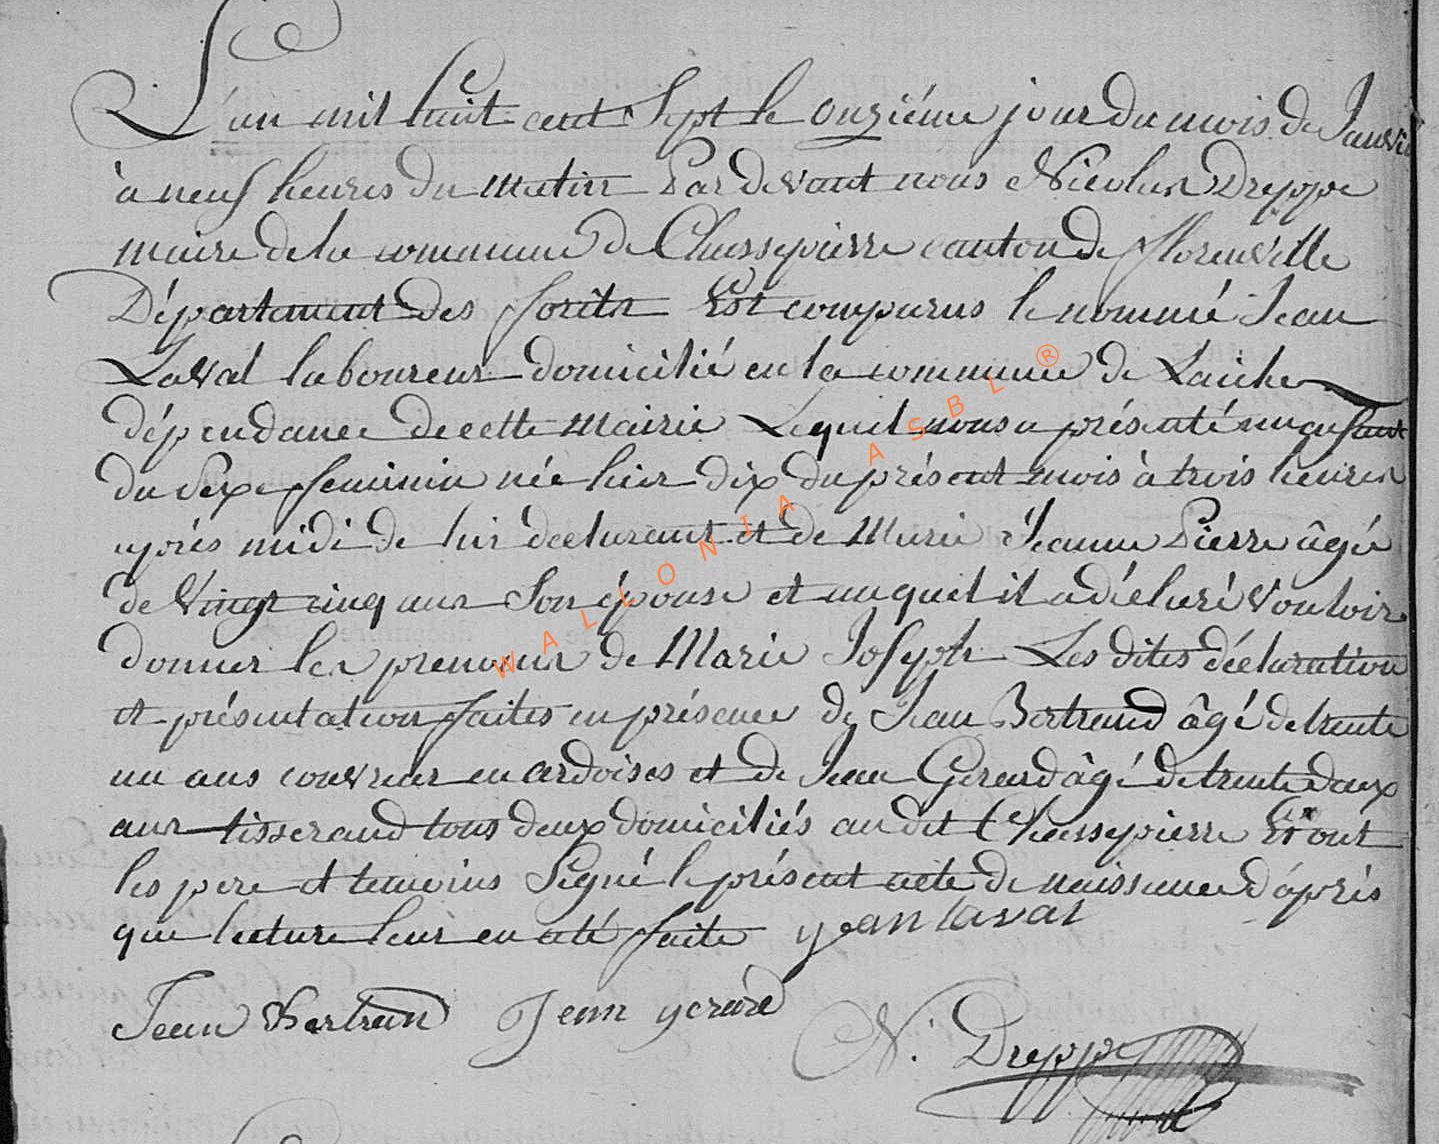 L'an mil huit cent Sept le onziéme jour du mois de Janvier
à neuf heures du matin Par devant nous Nicolas Dreppe
maire de la commune de Chassepierre canton de fflorenville
Département des fforèts Est comparus le nommé Jean
Laval laboureur domicilié en la commune de Laiche
dépendance de cette mairie Lequel nous a présenté un enfant
du Sexe ffeminin née hier dix du présent mois à trois heures
après midi de lui déclarant et de Marie Jeanne Pierre âgé
de Vingt cinq ans Son épouse et auquel il a déclaré Vouloir
donner les prenoms de Marie Joseph Les dites déclaration
et présentation ffaites en présence de Jean Bertrand âgé de trente
un ans couvreur en ardoises et de Jean Gerard âgé de trente deux
ans tisserand tous deux domiciliés au dit Chassepierre Et ont
les pere et temoins Signé le présent acte de naissance d'après
que lecture leur en a été ffaite jean laval
Jean Bertran Jean gerard
N. Dreppe
WALLONIA ASBL ®